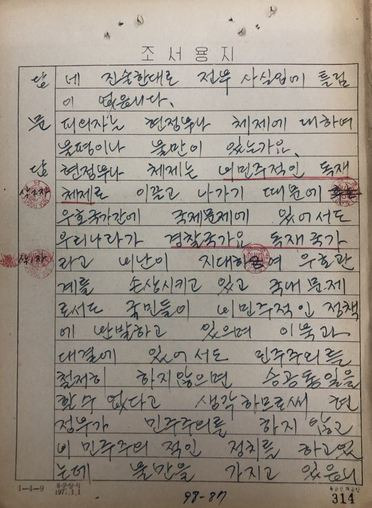 조서용지
답 네 진술한대로 전부 사실임에 틀림
이 없읍니다.
문 피의자는 현정부나 체제에 대하여
불평이나 불만이 있는가요.
답 현정부나 체제는 비민주적인 독재
체제로 이끌고 나가기 때문에
우호국가간에 국제문제에 있어서도
우리나라가 경찰국가요 독재국가
라고 비난이 지대하며 우호관
계를 손상시키고 있고 국내문제
로서도 국민들이 비민주적인 정책
에 반발하고 있으며 이북과
대결에 있어서도 민주주의를
철저히 하지않으면 승공통일을
할수 없다고 생각하므로써 현
정부가 민주주의를 하지 않고
비민주주의적인 정치를 하고있
는데 불만을 가지고 있읍니
1-4-9
98-87
314